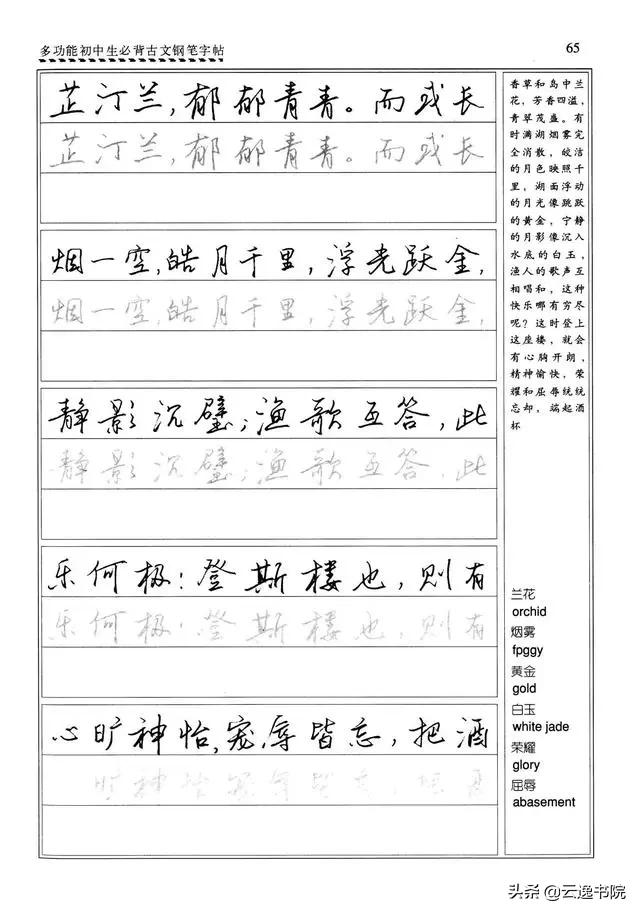 多功能初中生必背古文钢笔字帖
65
芷汀兰，郁郁青青。而或长
芷汀兰，郁郁青青。而或长
烟一空，皓月千里，浮光跃金，
烟一空，皓月千里，浮光跃金，
静影沉璧；渔歌互答，此
静影沉璧；渔歌互答，此
乐何极！登斯楼也，则有
乐何极！登斯楼也，则有
心旷神怡，宠辱皆忘，把酒
旷神怡 宠辱皆忘，把酒
香草和岛中兰
花，芳香四溢，
青翠茂盛。有
时满湖烟雾完
全消散，皎洁
的月色映照千
里，湖面浮动
的月光像跳跃
的黄金，宁静
的月影像沉入
水底的白玉，
渔人的歌声互
相唱和，这种
快乐哪有穷尽
呢？这时登上
这座楼，就会
有心胸开朗，
精神愉快，荣
耀和屈辱统统
忘却，端起酒
杯
兰花
orchid
烟雾
fpggy
黄金
gold
白玉
white jade
荣耀
glory
屈辱
abasement
头条@云逸书院